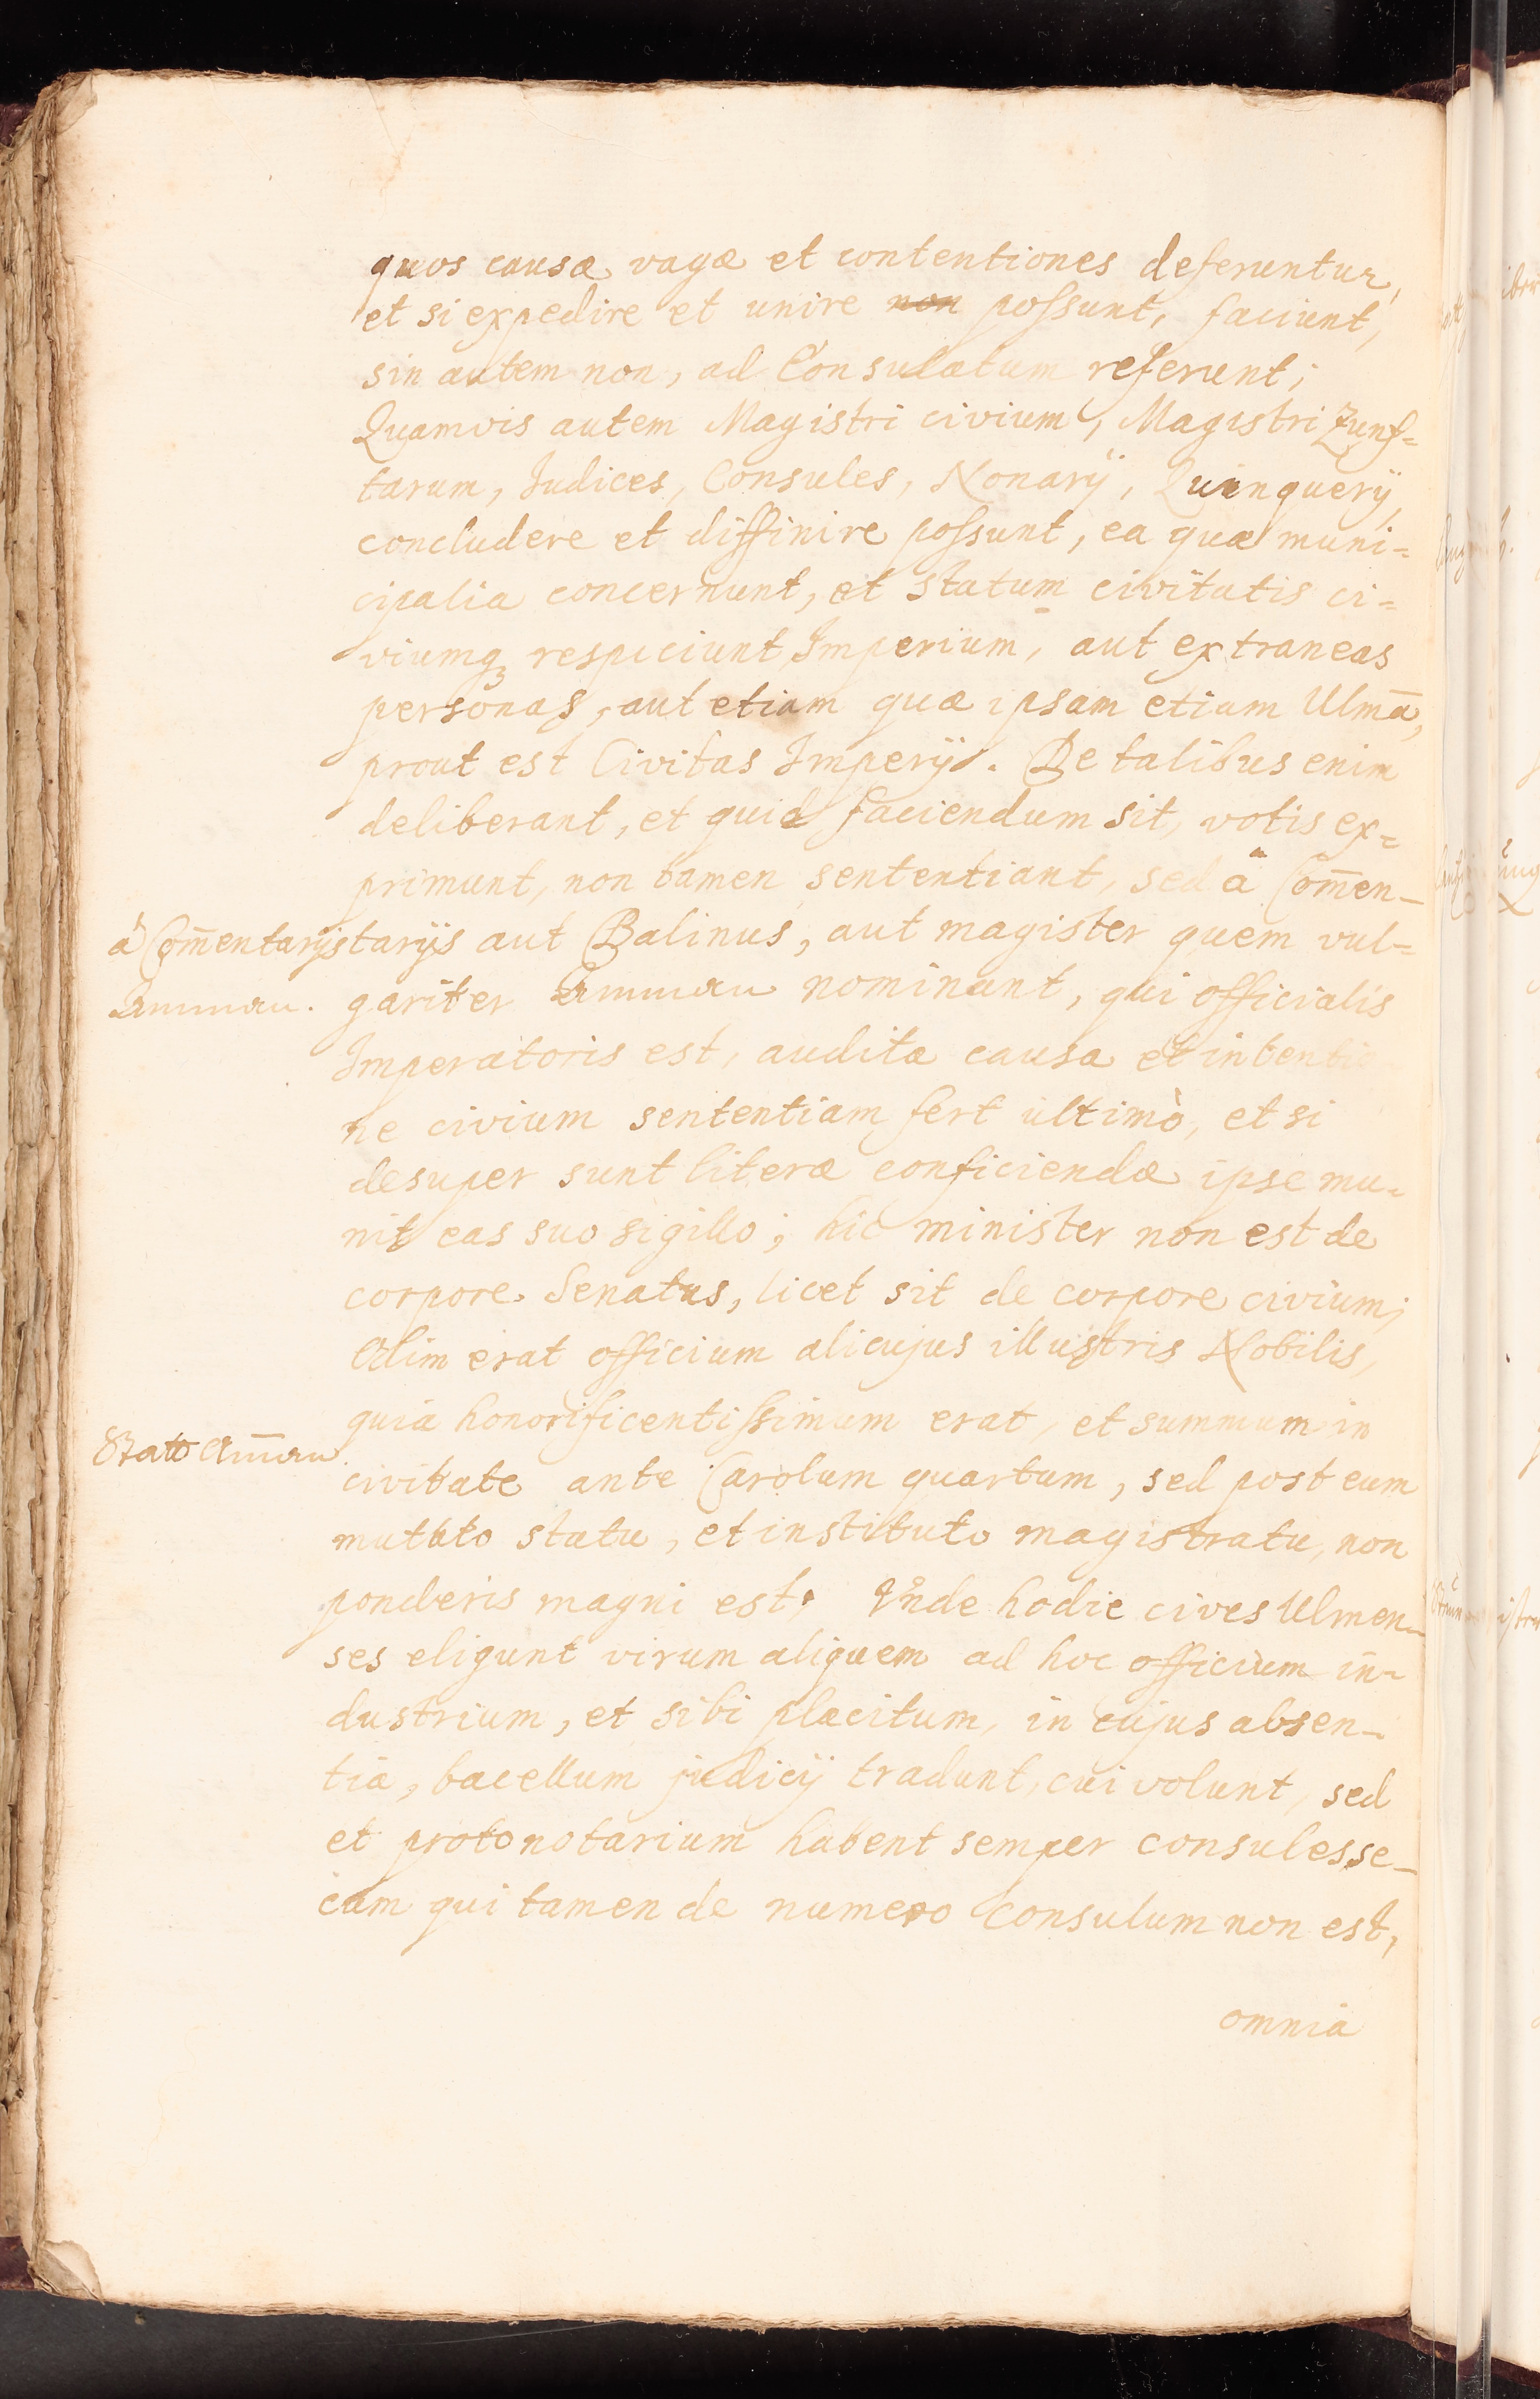 quos causæ vagæ et contentiones deferuntur,
et si expedire et unire non possunt, faciunt,
sin autem non, ad Consulatum referunt;
Quamvis autem Magistri civium, Magistri Zunf=
tarum, Judices, Consules, Nonarÿ, Quinquerÿ,
concludere et diffinire possunt, ea quæ muni=
cipalia concernunt, et statum civitatis ci=
viumq; respiciunt Imperium, aut extraneas
personas, aut etiam quæ ipsam etiam Ulmā,
prout est Civitas Imperÿ. De talibus enim
deliberant, et quid faciendum sit, votis ex=
primunt, non tamen sententiant, sed à Com̄en-
à Com̄entarÿs
tarÿs aut Balinus, aut magister quem vul=
Amman.
gariter Amman nominant, qui officialis
Imperatoris est, audita causa et intentio
ne civium sententiam fert ultimò, et si
desuper sunt literæ conficiendæ ipse mu-
nit eas suo sigillo; hic minister non est de
corpore Senatus, licet sit de corpore civium;
Olim erat officium alicujus illustris Nobilis,
quia honorificentissimum erat, et summum in
Statt Am̄an
civitate ante Carolum quartum, sed post eum
mutato statu, et instituto magistratu, non
ponderis magni est, Unde hodie cives Ulmen-
ses eligunt virum aliquem ad hoc officium in-
dustrium, et sibi placitum, in cujus absen-
tia, bacellum judicÿ tradunt, cui volunt, sed
et protonotarium habent semper consules se-
cum qui tamen de numero Consulum non est,
omnia